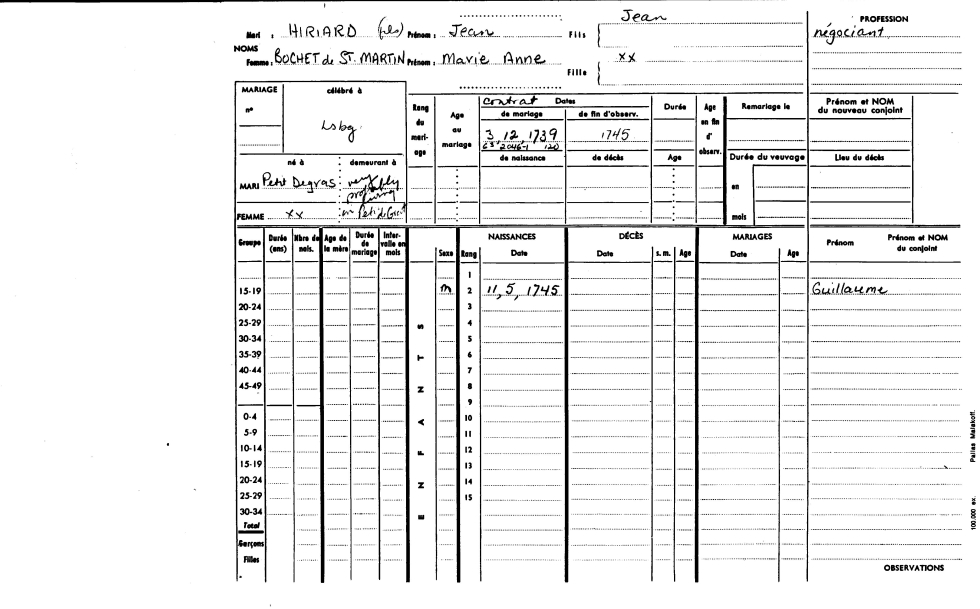 Jean PROFESSION
Mari : HIRIARD (fils) Prénom : Jean Fils négociant
NOMS
Femme : BOCHET de ST. MARTIN Prénom : Marie Anne xx
Fille
MARIAGE célébré à Rang du mariage Age au mariage contrat Dates Durée Age en fin d' observ. Remariage le Prénom et NOM du nouveau conjoint
n° de mariage de fin d'observ.
Lsbg. 3, 12, 1739 1745
G3 2046-1 120
né à demeurant à de naissance de décès Age Durée du veuvage Lieu du décès
MARI Petit Degras very probably living en
FEMME xx in Petit de Grat mois
Groupe Durée (ans) Nbre de nais. Age de la mère Durée de mariage Intervalle en mois NAISSANCES DÉCÈS MARIAGES Prénom Prénom et NOM du conjoint
Sexe Rang Date Date s.m. Age Date Age
1
15-19 m 2 11, 5, 1745 Guillaume
20-24 3
25-29 S 4
30-34 5
35-39 T 6
40-44 7
45-49 N 8
9
0-4 A 10
5-9 11
10-14 F 12
15-19 13
20-24 N 14
25-29 15
30-34 E
Total
Garçons
Filles
OBSERVATIONS
100.000 ex. Pallas Malakoff.